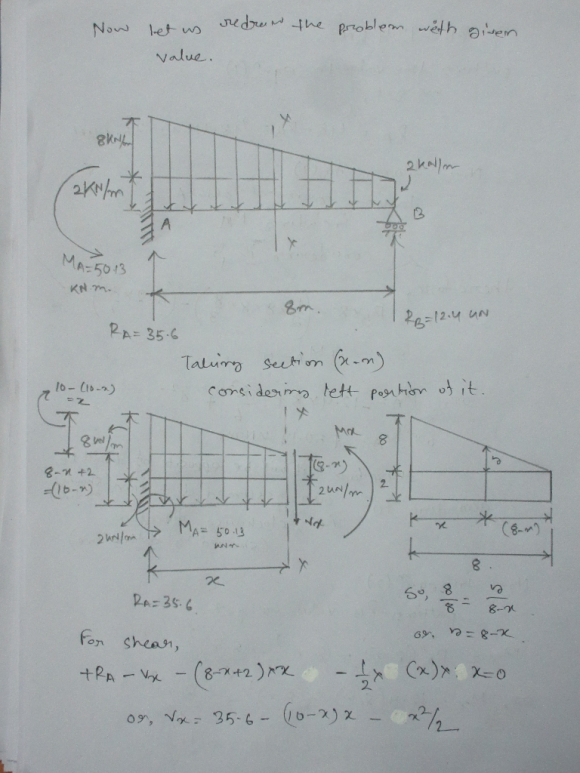 Now let us redraw the problem with given
value.
8KN/m
2KN/m
2KN/m
x
A
B
x
MA=50.13
KN m.
8m.
RA=35.6
RB=12.4 KN
Taking section (x-x)
considering left portion of it.
10-(10-x)
=x
8KN/m
8-x+2
=(10-x)
2KN/m
MA= 50.13
KNm.
x
RA=35.6
x
(8-x)
2KN/m
Vx
x
Mx
8
2
x
(8-x)
8
So, 8/8 = /8-x
or, =8-x
For shear,
+RA - Vx - (8-x+2)*x - 1/2 * (x)* x=0
or, Vx= 35.6 - (10-x)x - x²/2